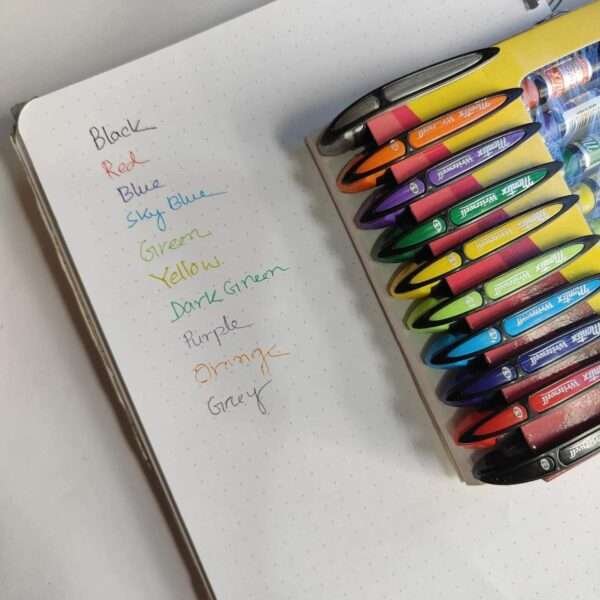 Black
Red
Blue
Sky Blue
Green
Yellow.
Dark Green
Purple
Orange
Grey
Montex Writewell
Montex Writewell
Montex Writewell
Montex Writewell
Montex Writewell
Montex Writewell
Montex Writewell
Montex Writewell